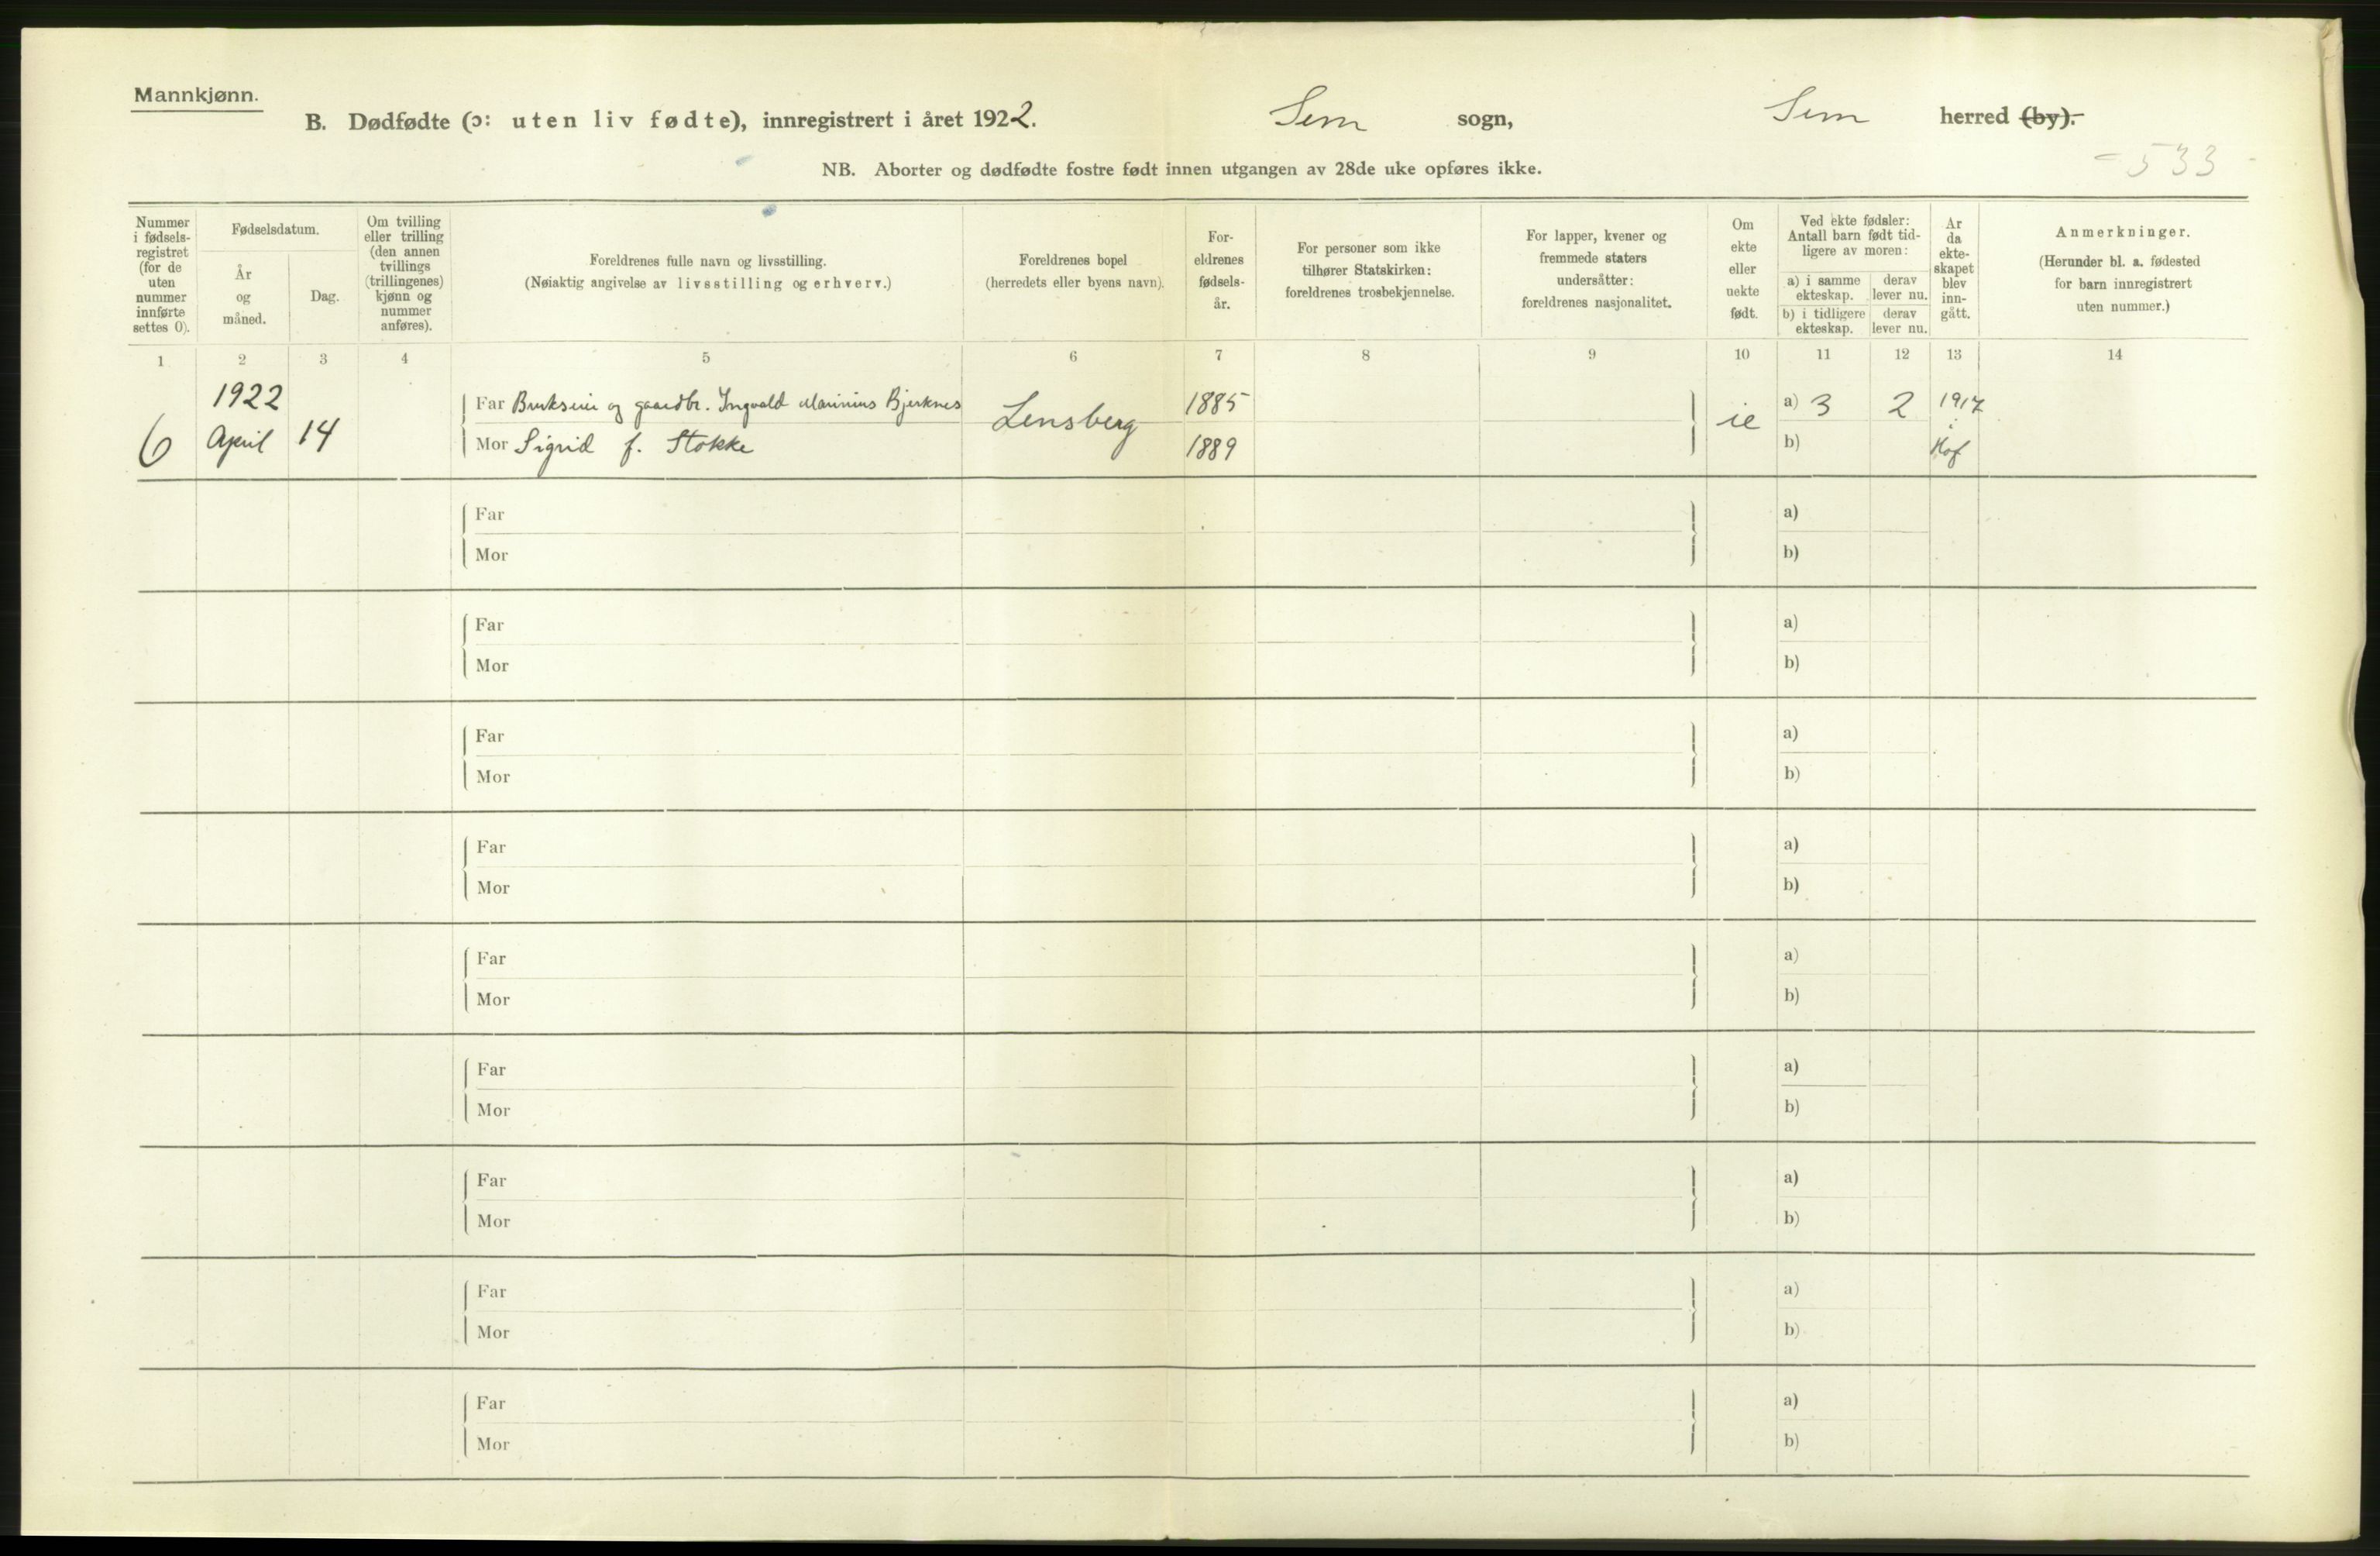 Mannkjønn.
B. Dødfødte (ɔ: uten liv fødte), innregistrert i året 1922. Sem sogn, Sem herred (by).
NB. Aborter og dødfødte fostre født innen utgangen av 28de uke opføres ikke.
- 533 -
Nummer i fødsels-registret (for de uten nummer innførte settes 0).
Fødselsdatum.
År og måned.
Dag.
Om tvilling eller trilling (den annen tvillings (trillingenes) kjønn og nummer anføres).
Foreldrenes fulle navn og livsstilling.
(Nøiaktig angivelse av livsstilling og erhverv.)
Foreldrenes bopel
(herredets eller byens navn).
For-eldrenes fødsels-år.
For personer som ikke
tilhører Statskirken:
foreldrenes trosbekjennelse.
For lapper, kvener og
fremmede staters
undersåtter:
foreldrenes nasjonalitet.
Om ekte eller uekte født.
Ved ekte fødsler:
Antall barn født tid-
ligere av moren:
a) i samme ekteskap.
derav lever nu.
b) i tidligere ekteskap.
derav lever nu.
År da ekte-skapet blev inn-gått.
Anmerkninger.
(Herunder bl. a. fødested
for barn innregistrert
uten nummer.)
1 2 3 4 5 6 7 8 9 10 11 12 13 14
1922
Far Brukseier og gaardbr. Ingvald Marinius Bjerknes 1885 a) 3 2 1917
6 April 14 Lensberg ie i
Mor Sigrid f. Stokke 1889 b) Hof
Far a)
Mor b)
Far a)
Mor b)
Far a)
Mor b)
Far a)
Mor b)
Far a)
Mor b)
Far a)
Mor b)
Far a)
Mor b)
Far a)
Mor b)
Far a)
Mor b)